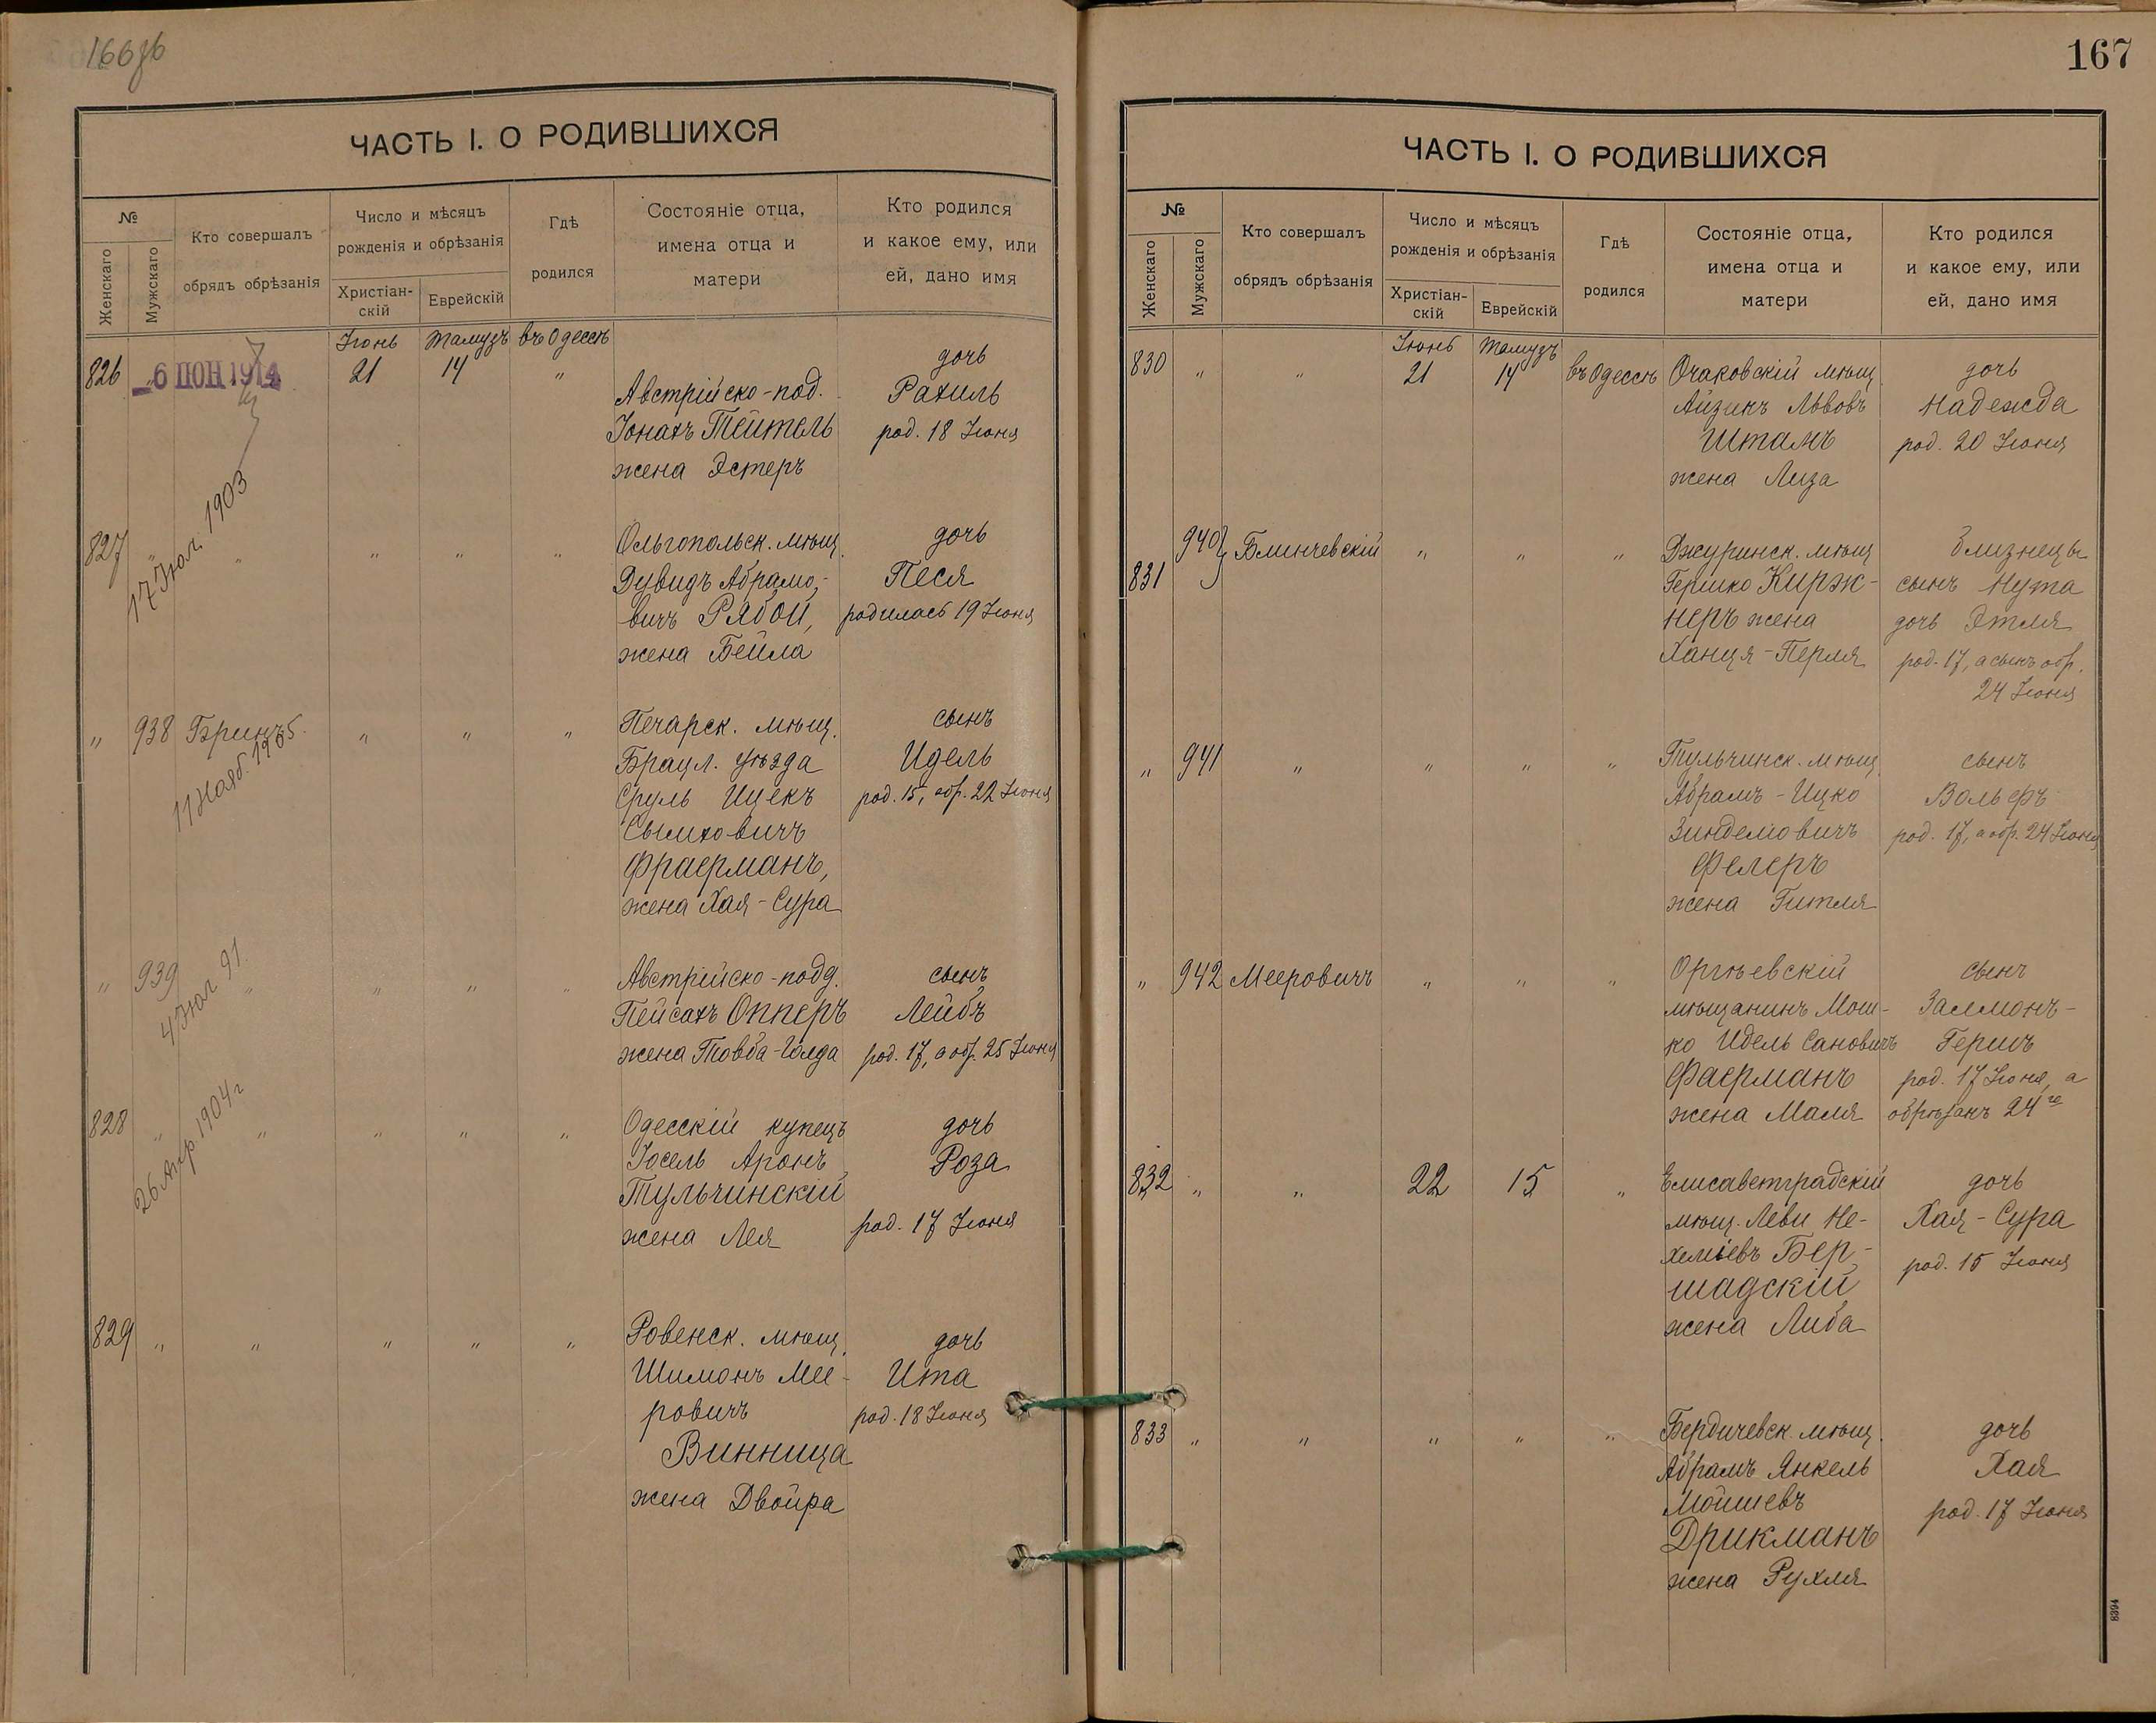 166 об
ЧАСТЬ I. О РОДИВШИХСЯ
№
Женскаго
Мужскаго
Кто совершалъ
обрядъ обрѣзанія
Число и мѣсяцъ
рожденія и обрѣзанія
Христіан-
скій
Еврейскій
Гдѣ
родился
Состояніе отца,
имена отца и
матери
Кто родился
и какое ему, или
ей, дано имя
Іюнь Тамузъ въ Одессѣ
826 " 6 ІЮН 1914 21 14 "
Австрійско-под.
Іонахъ Тейтель
жена Эстеръ
дочь
Рахиль
род. 18 Іюня
17 Іюл. 1903
827 " " " " "
Ольгопольск. мѣщ.
Дувидъ Абрамо-
вичъ Рябой,
жена Бейла
дочь
Песя
родилась 19 Іюня
" 938 Бринъ " " "
11 Нояб. 1905
Печарск. мѣщ.
Брацл. уѣзда
Сруль Ицекъ
Сымховичъ
Фраерманъ,
жена Хая-Сура
сынъ
Идель
род. 15, обр. 22 Іюня
" 939 " " " "
4 Іюл 91
Австрійско-подд.
Пейсахъ Опперъ
жена Товба-Голда
сынъ
Лейбъ
род. 17, а обр. 25 Іюня
828 " " " " "
26 Апр. 1904 г
Одесскій купецъ
Іосель Аронъ
Тульчинскій
жена Лея
дочь
Роза
род. 17 Іюня
829 " " " " "
Ровенск. мѣщ.
Шимонъ Мее-
ровичъ
Винница
жена Двойра
дочь
Ита
род. 18 Іюня
167
ЧАСТЬ I. О РОДИВШИХСЯ
№
Женскаго
Мужскаго
Кто совершалъ
обрядъ обрѣзанія
Число и мѣсяцъ
рожденія и обрѣзанія
Христіан-
скій
Еврейскій
Гдѣ
родился
Состояніе отца,
имена отца и
матери
Кто родился
и какое ему, или
ей, дано имя
Іюнь Тамузъ
830 " " 21 14 въ Одессѣ
Очаковскій мѣщ.
Айзикъ Львовъ
Штамъ
жена Лиза
дочь
Надежда
род. 20 Іюня
940 Блинчевскій " " "
831
Джуринск. мѣщ
Гершко Кирж-
неръ жена
Ханця-Перля
близнецы
сынъ Нута
дочь Этля
род. 17, а сынъ обр.
24 Іюня
" 941 " " " "
Тульчинск. мѣщ.
Абрамъ-Ицко
Зинделіовичъ
Фелеръ
жена Гитля
сынъ
Вольфъ
род. 17, а обр. 24 Іюня
" 942 Мееровичъ " " "
Оргѣевскій
мѣщанинъ Мош-
ко Идель Сановичъ
Фаерманъ
жена Маля
сынъ
Залмонъ-
Гершъ
род. 17 Іюня, а
обрѣзанъ 24го
832 " " 22 15 "
Елисаветградскій
мѣщ. Леви Не-
хеміевъ Бер-
шадскій
жена Либа
дочь
Хая-Сура
род. 15 Іюня
833 " " " " "
Бердичевск. мѣщ.
Абрамъ Янкель
Мошіевъ
Дрикманъ
жена Рухля
дочь
Хая
род. 17 Іюня
8394